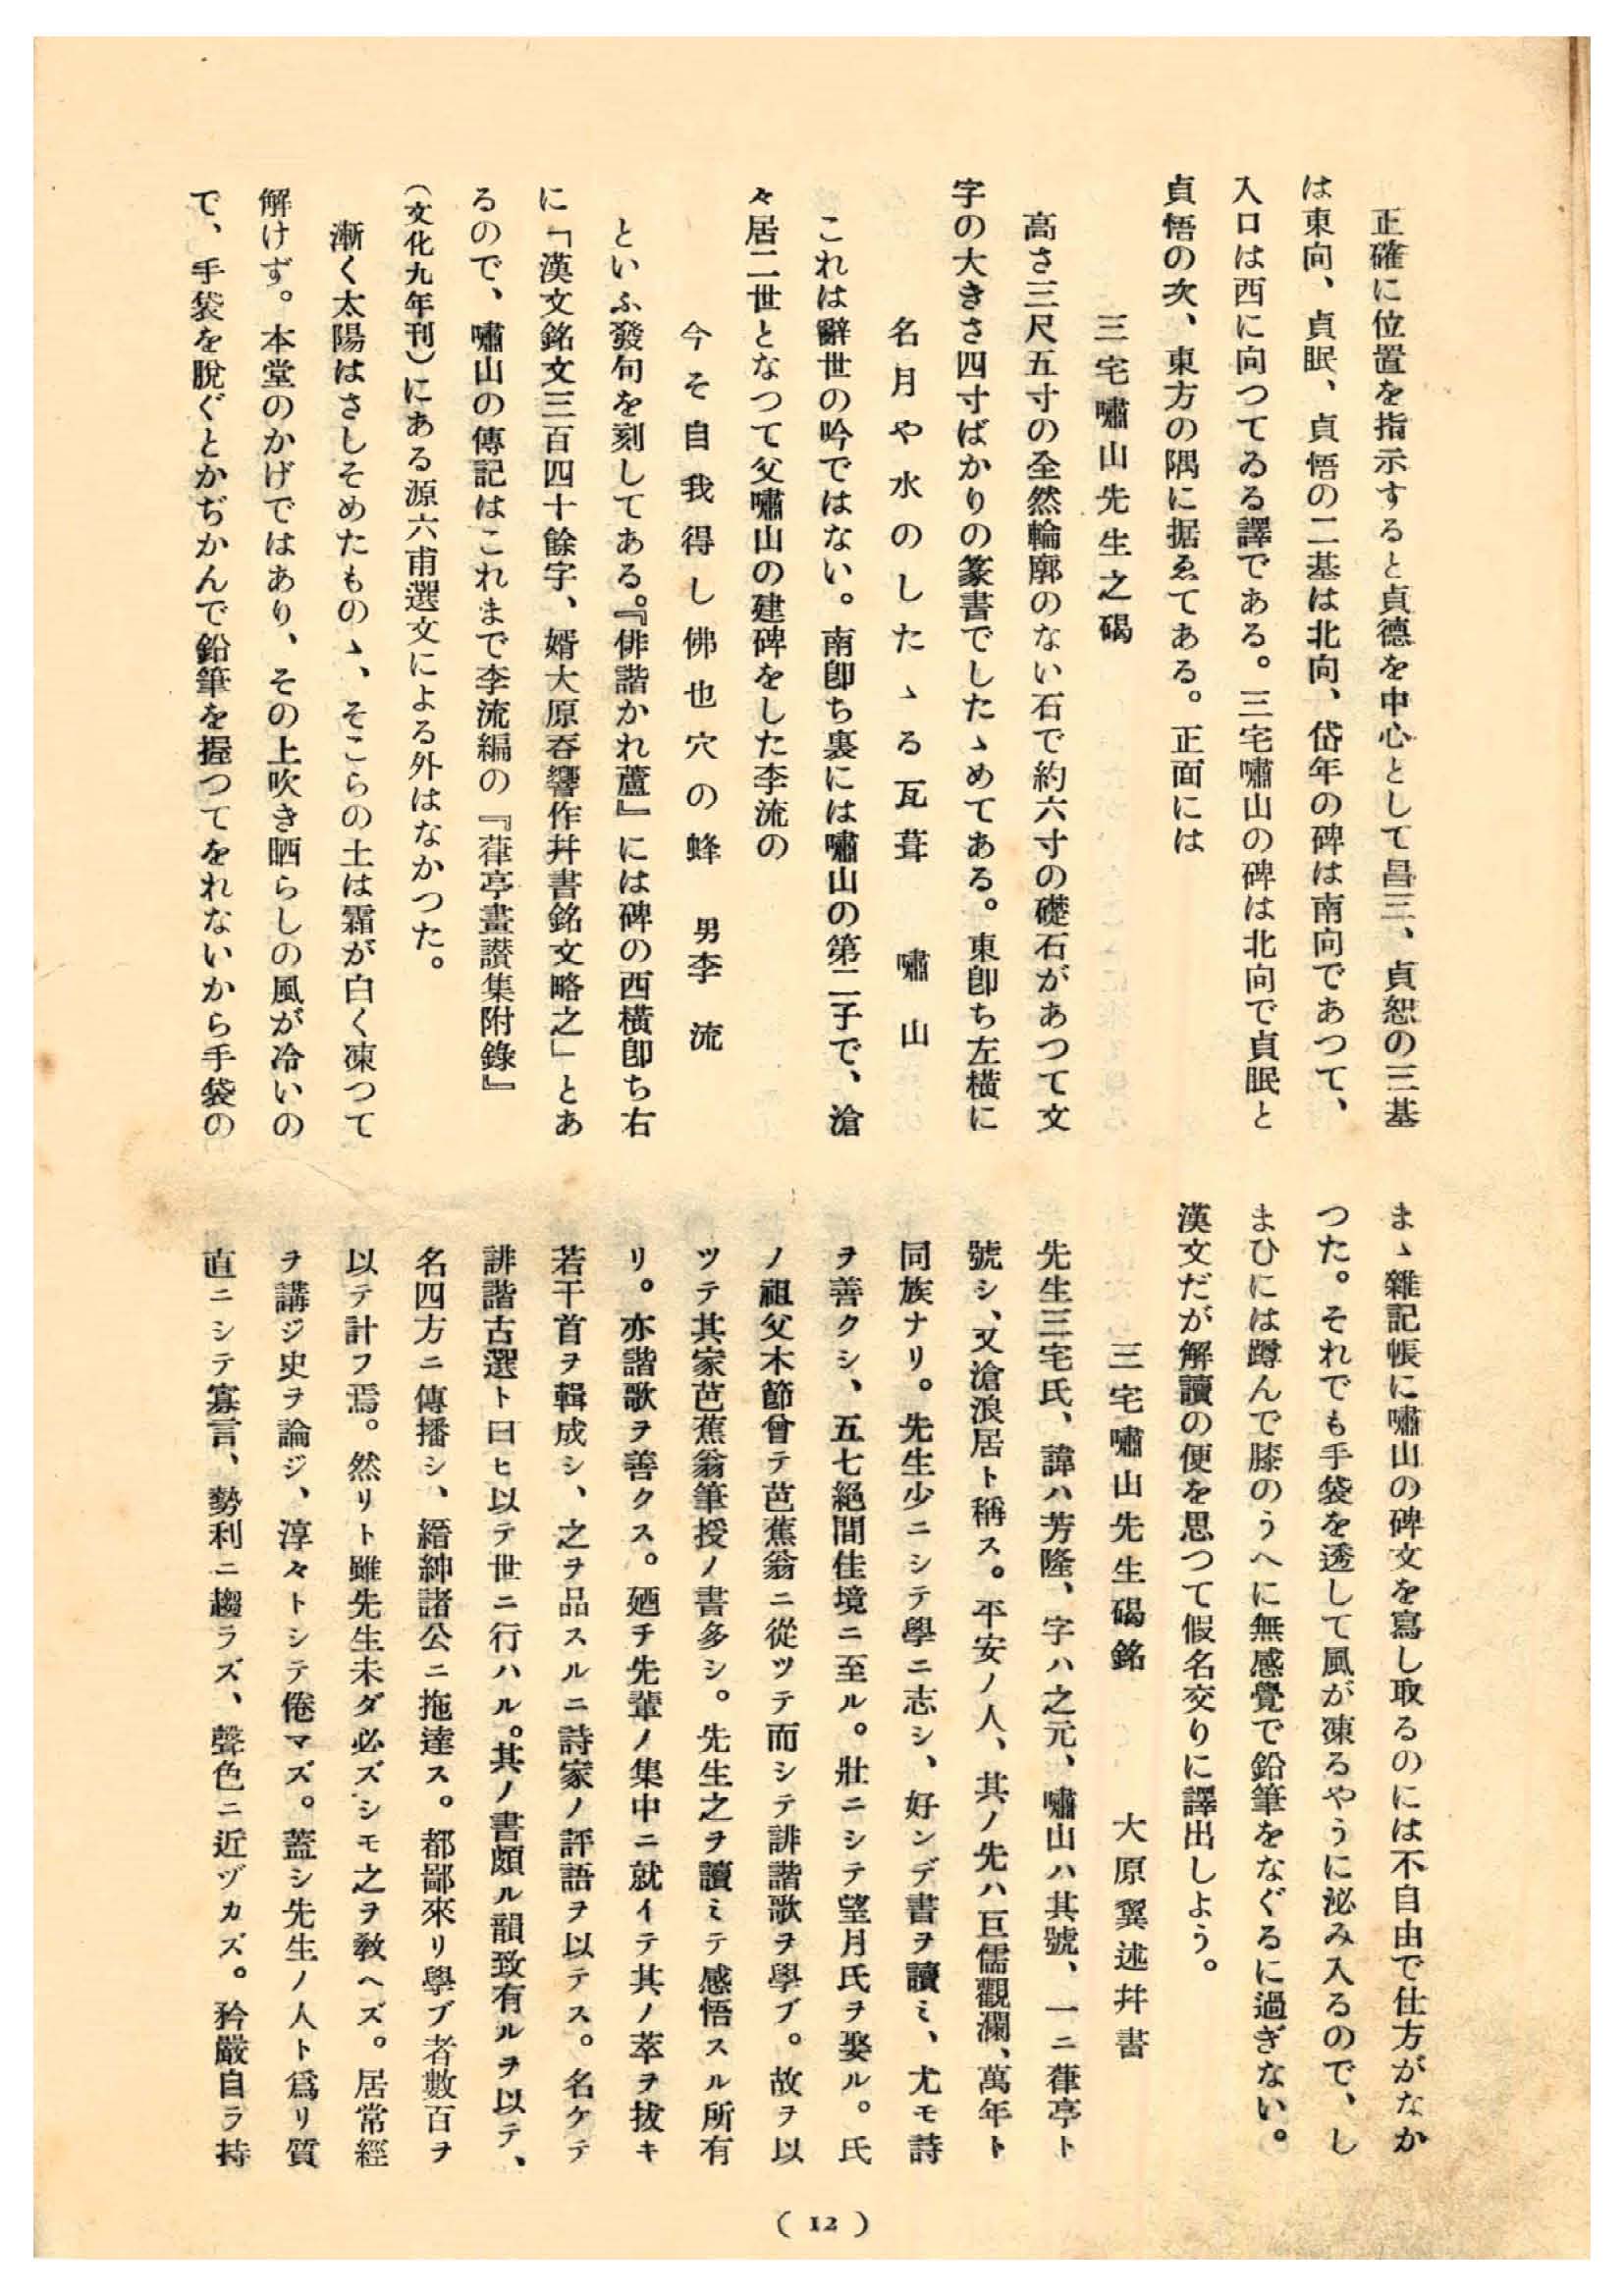 正確に位置を指示すると貞德を中心として昌三、貞恕の三基
は東向、貞眠、貞悟の二基は北向、岱年の碑は南向であつて、
入口は西に向つてゐる譯である。三宅嘯山の碑は北向で貞眠と
貞悟の次、東方の隅に据ゑてある。正面には
三宅嘯山先生之碣
高さ三尺五寸の全然輪廓のない石で約六寸の礎石があつて文
字の大きさ四寸ばかりの篆書でしたゝめてある。東卽ち左橫に
名月や水のしたゝる瓦葺　嘯山
これは辭世の吟ではない。南卽ち裏には嘯山の第二子で、滄
々居二世となつて父嘯山の建碑をした李流の
今そ自我得し佛也穴の蜂　男李流
といふ發句を刻してある。『俳諧かれ蘆』には碑の西橫卽ち右
に「漢文銘文三百四十餘字、婿大原吞響作幷書銘文略之」とあ
るので、嘯山の傳記はこれまで李流編の『葎亭畫讃集附錄』
（文化九年刊）にある源六甫選文による外はなかつた。
漸く太陽はさしそめたものゝ、そこらの土は霜が白く凍つて
解けず。本堂のかげではあり、その上吹き晒らしの風が冷いの
で、手袋を脫ぐとかぢかんで鉛筆を握つてをれないから手袋の
まゝ雜記帳に嘯山の碑文を寫し取るのには不自由で仕方がなか
つた。それでも手袋を透して風が凍るやうに泌み入るので、し
まひには蹲んで膝のうへに無感覺で鉛筆をなぐるに過ぎない。
漢文だが解讀の便を思つて假名交りに譯出しよう。
三宅嘯山先生碣銘　大原翼述幷書
先生三宅氏、諱ハ芳隆、字ハ之元、嘯山ハ其號、一ニ葎亭ト
號シ、又滄浪居ト稱ス。平安ノ人、其ノ先ハ巨儒觀瀾、萬年ト
同族ナリ。先生少ニシテ學ニ志シ、好ンデ書ヲ讀ミ、尤モ詩
ヲ善クシ、五七絕間佳境ニ至ル。壯ニシテ望月氏ヲ娶ル。氏
ノ祖父木節曾テ芭蕉翁ニ從ツテ而シテ誹諧歌ヲ學ブ。故ヲ以
ツテ其家芭蕉翁筆授ノ書多シ。先生之ヲ讀ミテ感悟スル所有
リ。亦諧歌ヲ善クス。廼チ先輩ノ集中ニ就イテ其ノ萃ヲ拔キ
若干首ヲ輯成シ、之ヲ品スルニ詩家ノ評語ヲ以テス。名ケテ
誹諧古選ト曰ヒ以テ世ニ行ハル。其ノ書頗ル韻致有ルヲ以テ、
名四方ニ傳播シ、縉紳諸公ニ拖達ス。都鄙來リ學ブ者數百ヲ
以テ計フ焉。然リト雖先生未ダ必ズシモ之ヲ敎ヘズ。居常經
ヲ講ジ史ヲ論ジ、淳々トシテ倦マズ。蓋シ先生ノ人ト爲リ質
直ニシテ寡言、勢利ニ趨ラズ、聲色ニ近ヅカズ。矜嚴自ラ持
(12)